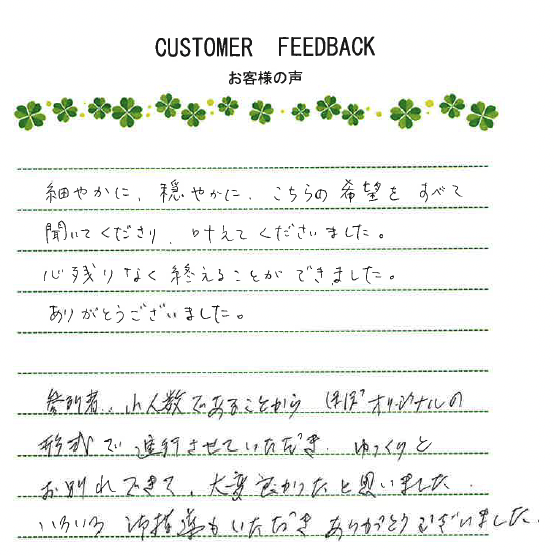 CUSTOMER FEEDBACK
お客様の声
細やかに、穏やかに、こちらの希望をすべて
聞いてくださり、叶えてくださいました。
心残りなく終えることができました。
ありがとうございました。
参列者、小人数であることから ほぼオリジナルの
形式で進行させていただき、ゆっくりと
お別れできて、大変良かったと思いました。
いろいろ御指導もいただきありがとうございました。